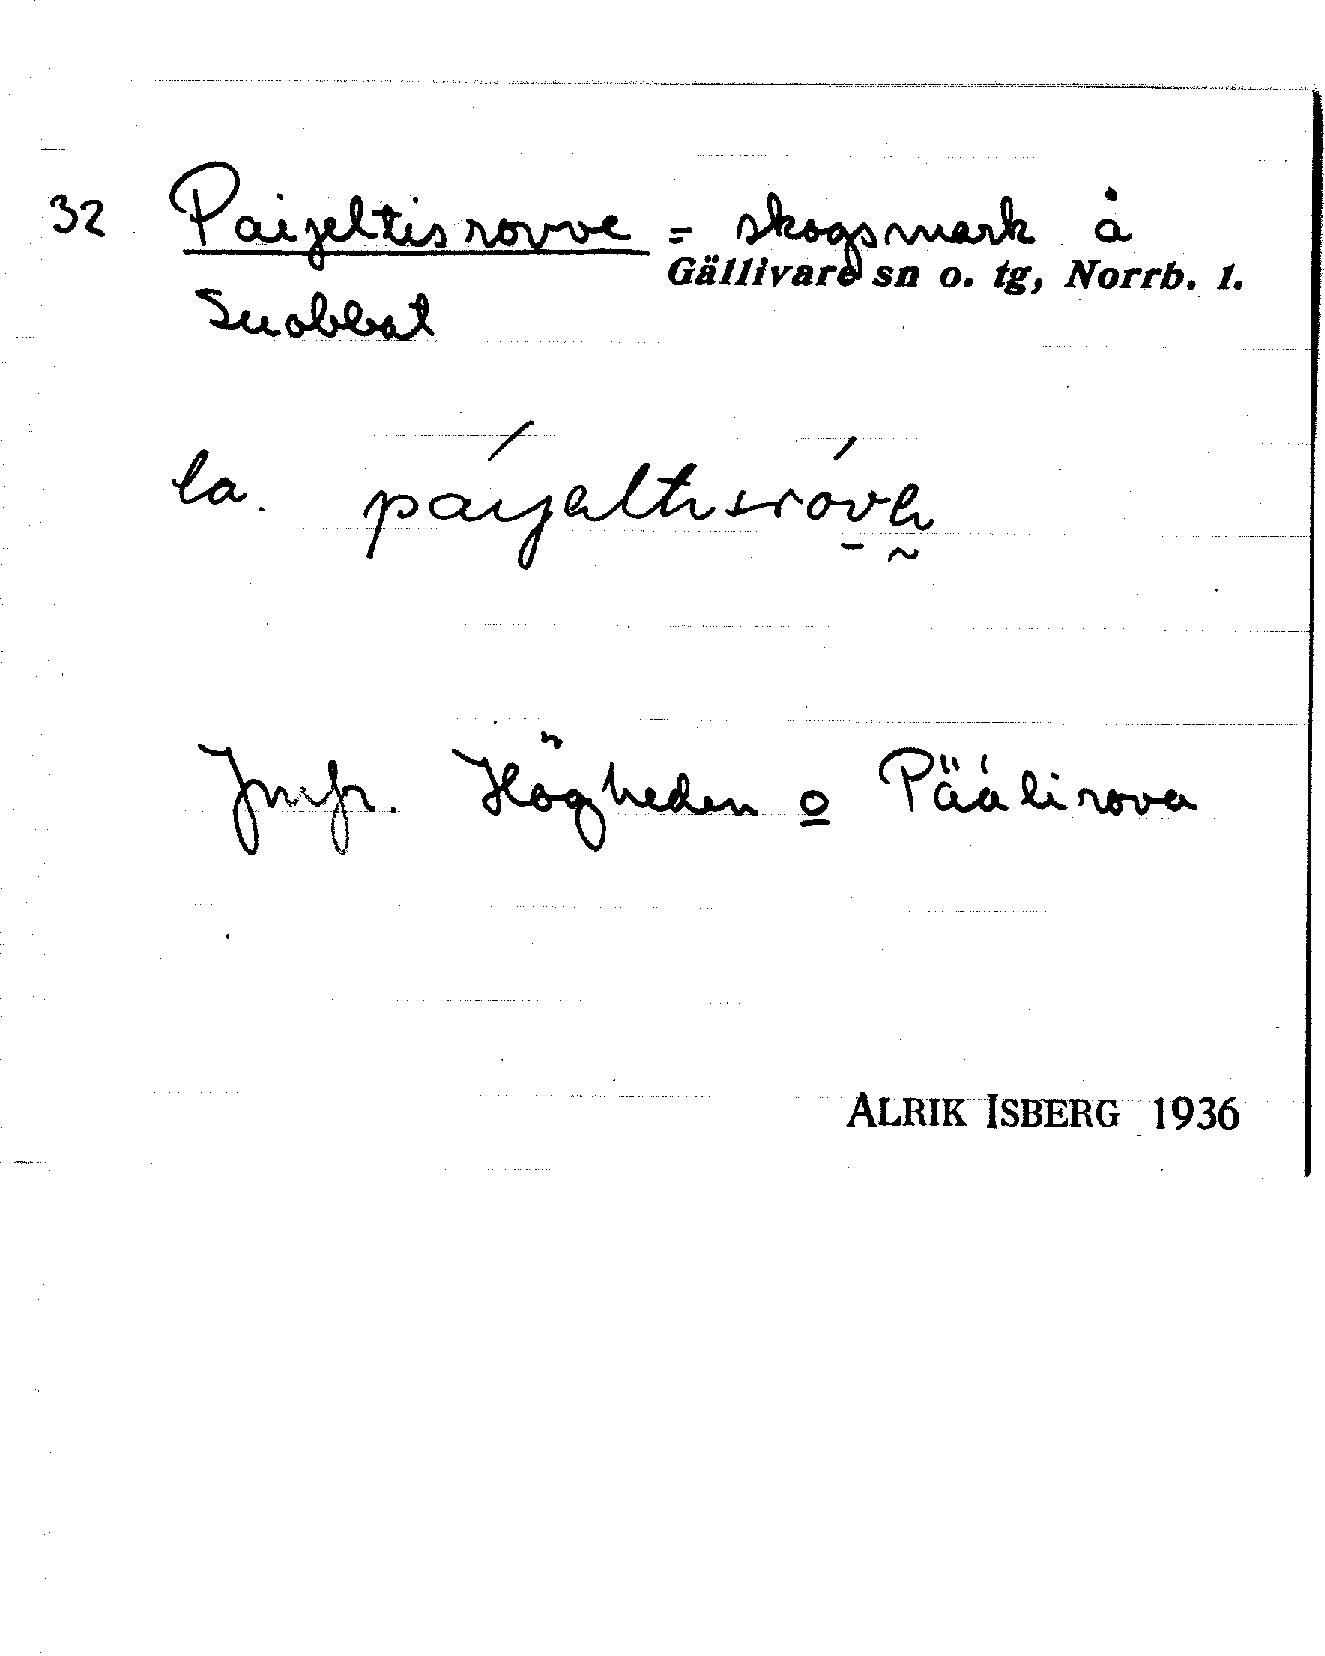 32 Paijeltisrovve = skogsmark å
Gällivare sn o. tg, Norrb. l.
Suobbat
la. páijeltisróve
Jmfr. Högheden o Päälirova
ALRIK ISBERG 1936